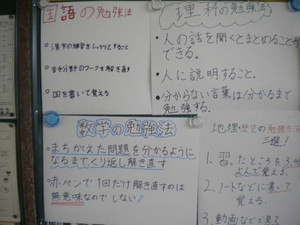 国語の勉強法
○漢字の練習をしっかりとすること
○苦手分野のワークを解き直す
○図を書いて覚える
理科の勉強法
・人の話を聞くとまとめること
できる。
・人に説明すること。
・分からない言葉は分かるまで
勉強する。
数学の勉強法
・まちがえた問題を分かるように
なるまでくり返し解き直す
・赤ペンで1回だけ解き直すのは
無意味なのでしない!
地理歴史の勉強方法
三選!
1. 習ったところを
よんで覚える。
2. ノートなどに書いて
覚える。
3. 動画などで見て